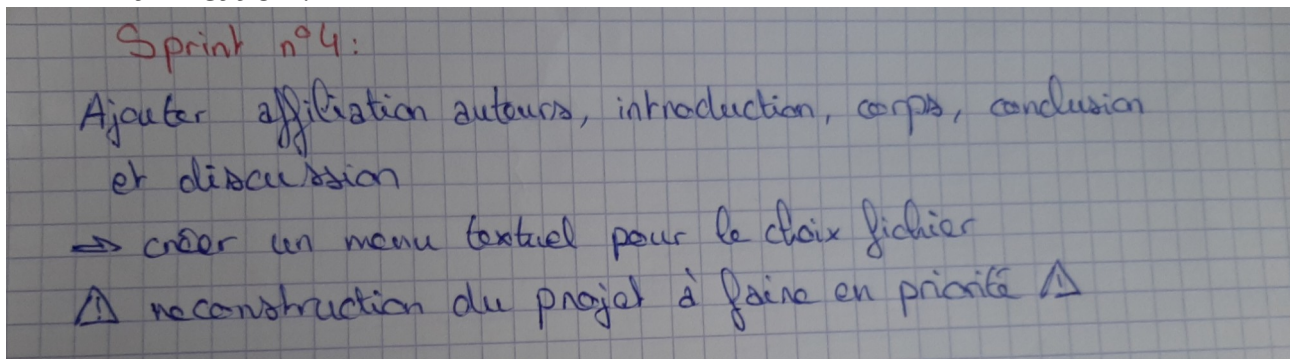 Sprint n°4:
Ajouter affiliation auteurs, introduction, corps, conclusion
et discussion
⇒ créer un menu textuel pour le choix fichier
⚠ reconstruction du projet à faire en priorité ⚠